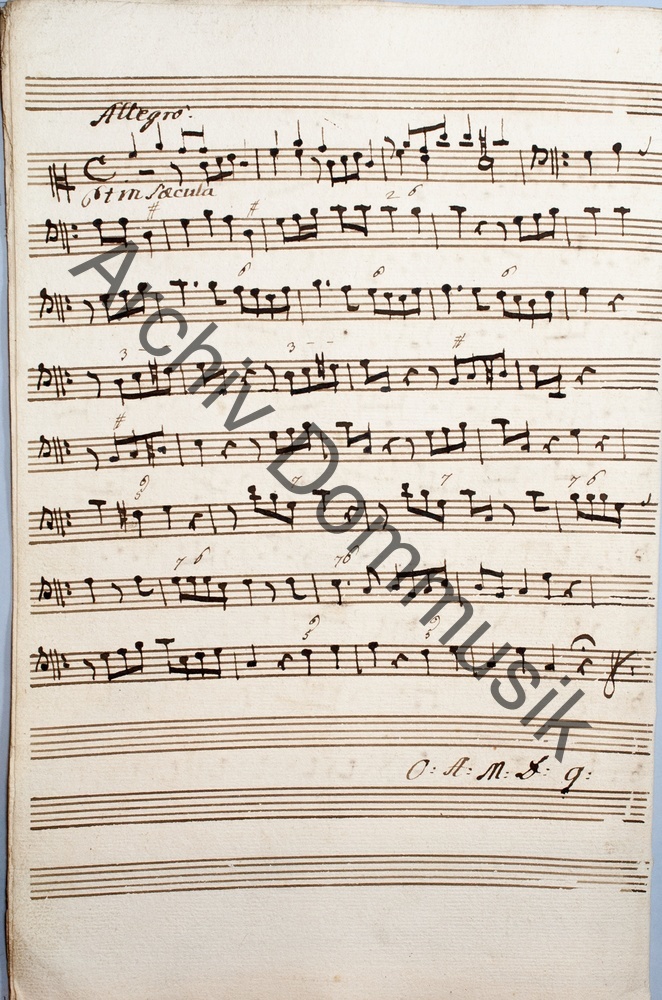 Allegro.
et in sæcula
# # 2 6
6 6 6
3 3 - - #
#
6
5 7 7 7 6
7 6 7 6
6
5 6
5
O: A: M: D: g:
Archiv Dommusik